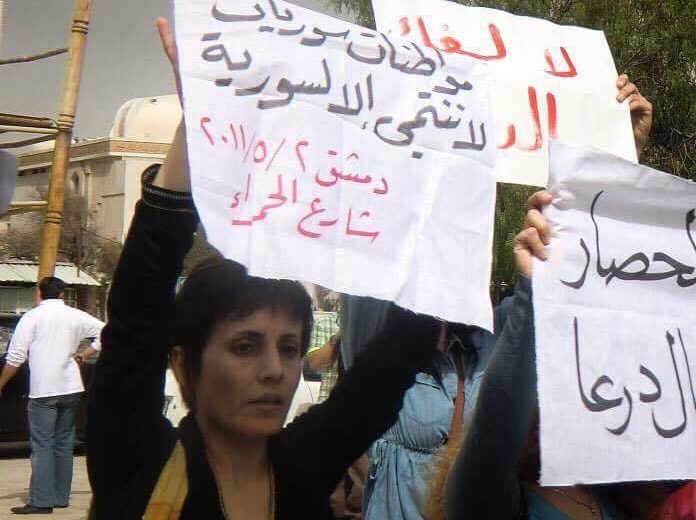 مواطنات سوريات
لا ننتمي إلا لسورية
دمشق ٢ /٥/ ٢٠١١
شارع الحمراء
لا لسفك
الد
لحصار
ال درعا